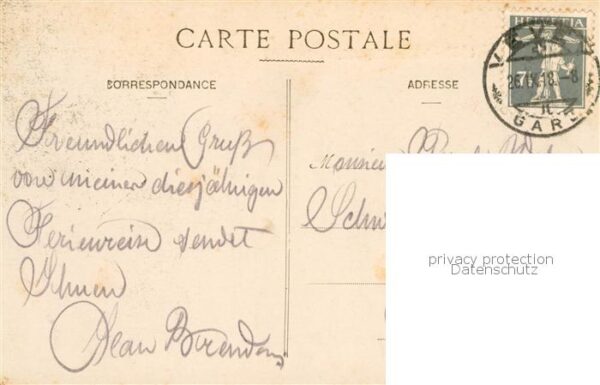 CARTE POSTALE
HELVETIA
VEVEY
26.IX.18.-8
GARE
CORRESPONDANCE
ADRESSE
Freundlichen Gruß
von meiner diesjährigen
Ferienreise sendet
Ihnen
Jean
Monsieur
privacy protection
Datenschutz